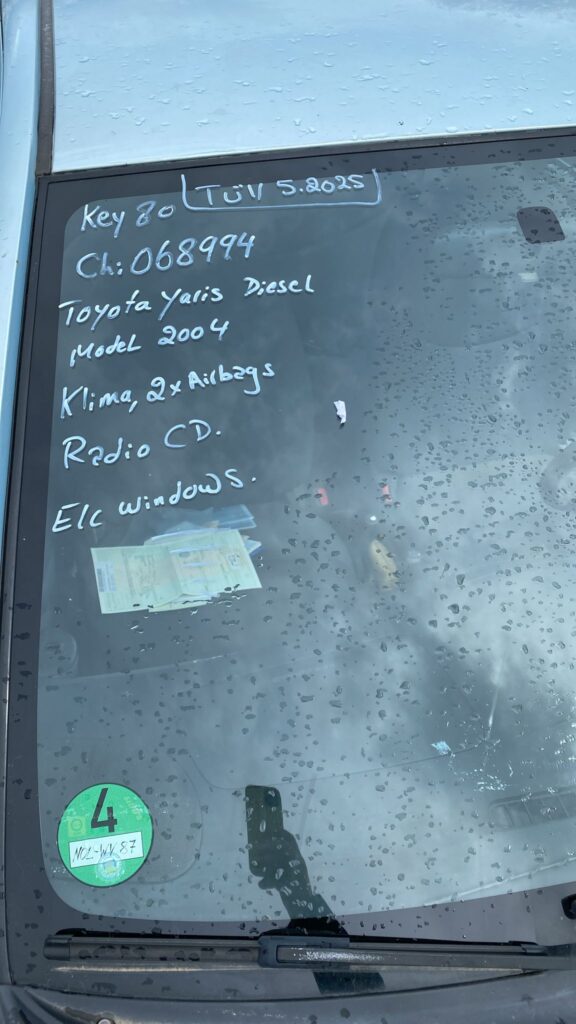 Key 80 TÜV 5.2025
Ch: 068994
Toyota Yaris Diesel
Model 2004
Klima, 2x Airbags
Radio CD.
Elc windows.
4
MOL-WV 87